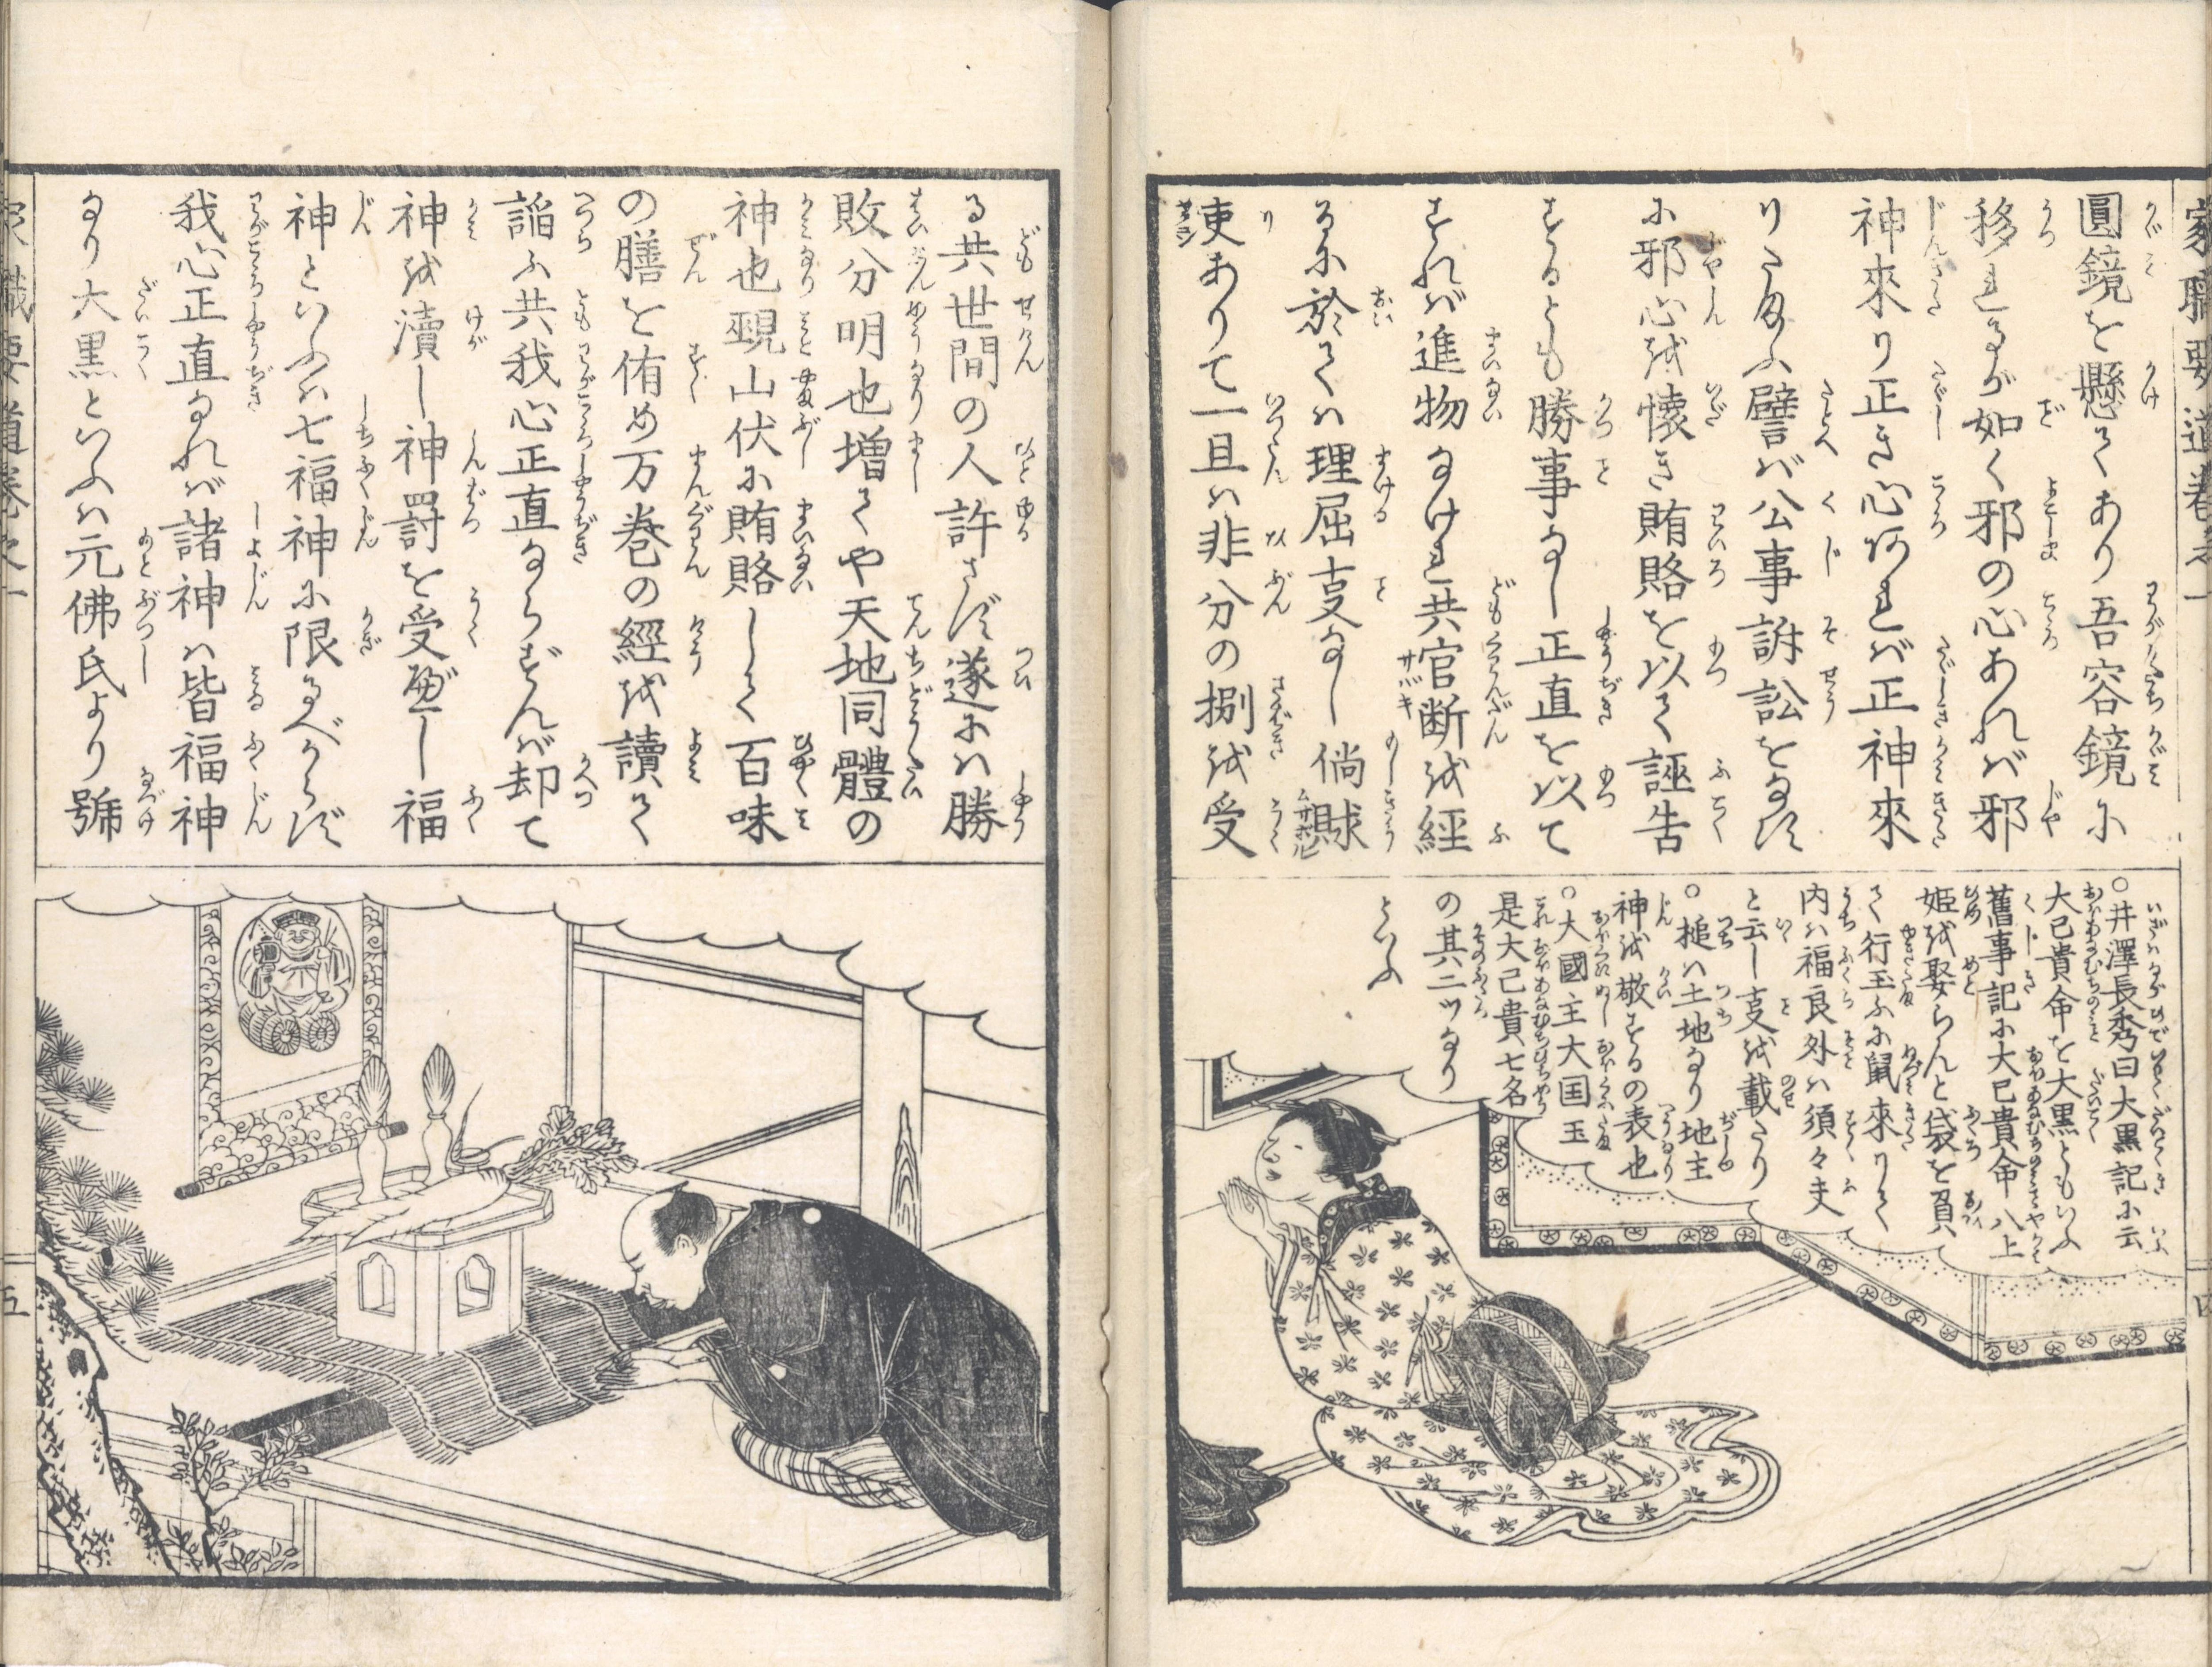 家職要道巻之一
圓鏡を懸てあり吾容鏡に
移るが如く邪の心あれバ邪
神來り正き心あれバ正神來
りたまふ譬バ公事訴訟をなす
に邪心を懐き賄賂を以て誣告
するとも勝事なし正直を以て
すれバ進物なけれ共官断を經
るに於てハ理屈支なし倘賕
吏ありて一旦ハ非分の捌を受
○井澤長秀曰大黒記に云
大己貴命を大黒ともいふ
舊事記に大己貴命八上
姫を娶らんと袋を負
て行玉ふに鼠來りて
内ハ福良外ハ須々夫
と云し支を載たり
○槌ハ土地なり地主
神を敬するの表也
○大國主大国玉
是大己貴七名
の其二ツなり
といふ
四
る共世間の人許さず遂にハ勝
敗分明也増てや天地同體の
神也覡山伏に賄賂して百味
の膳を侑め万巻の經を讀て
謟ふ共我心正直ならずんバ却て
神を瀆し神罰を受べし福
神といふハ七福神に限るべからず
我心正直なれバ諸神ハ皆福神
なり大黒といふハ元佛氏より號
家職要道巻之一
五